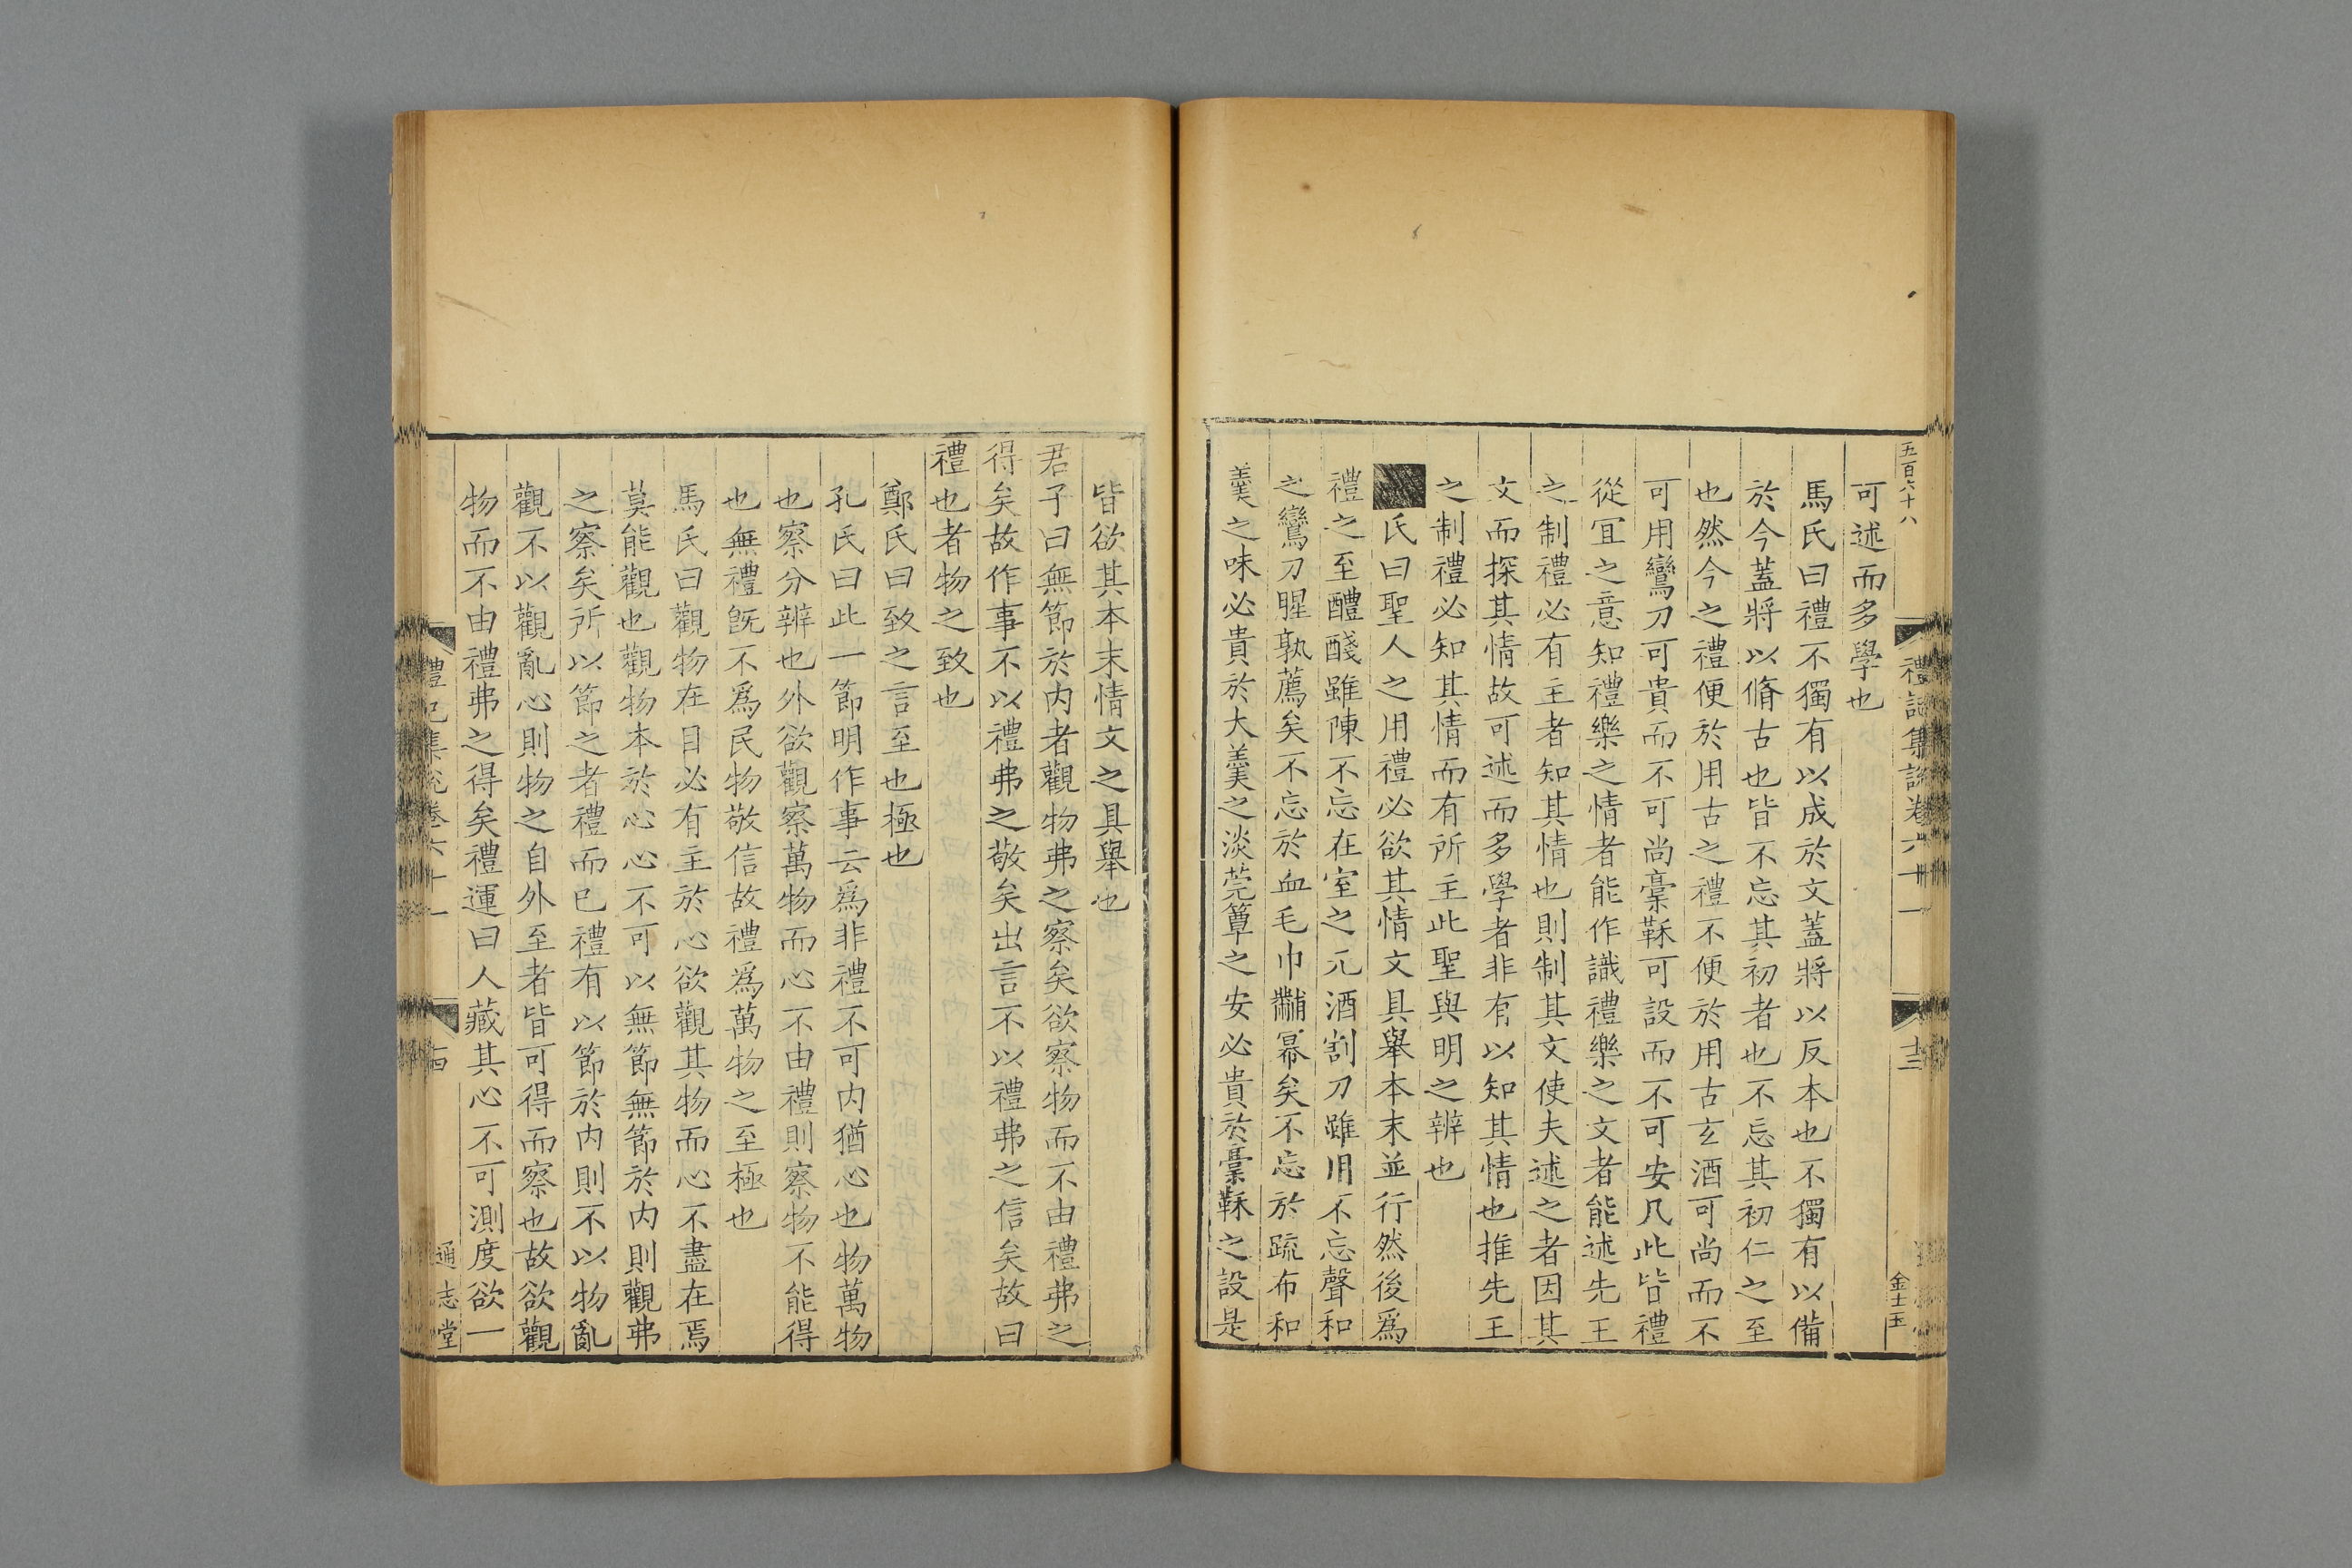 五百六十八
禮記集說卷六十一
十三
金士玉
可述而多學也
馬氏曰禮不獨有以成於文蓋將以反本也不獨有以備
於今蓋將以脩古也皆不忘其初者也不忘其初仁之至
也然今之禮便於用古之禮不便於用古玄酒可尚而不
可用鸞刀可貴而不可尚稾鞂可設而不可安凡此皆禮
從宜之意知禮樂之情者能作識禮樂之文者能述先王
之制禮必有主者知其情也則制其文使夫述之者因其
文而探其情故可述而多學者非有以知其情也推先王
之制禮必知其情而有所主此聖與明之辨也
氏曰聖人之用禮必欲其情文具舉本末並行然後爲
禮之至醴醆雖陳不忘在室之元酒割刀雖用不忘聲和
之鸞刀腥孰薦矣不忘於血毛巾黼冪矣不忘於疏布和
羹之味必貴於大羹之淡莞簟之安必貴於稾鞂之設是
皆欲其本末情文之具舉也
君子曰無節於内者觀物弗之察矣欲察物而不由禮弗之
得矣故作事不以禮弗之敬矣出言不以禮弗之信矣故曰
禮也者物之致也
鄭氏曰致之言至也極也
孔氏曰此一節明作事云爲非禮不可内猶心也物萬物
也察分辨也外欲觀察萬物而心不由禮則察物不能得
也無禮旣不爲民物敬信故禮爲萬物之至極也
馬氏曰觀物在目必有主於心欲觀其物而心不盡在焉
莫能觀也觀物本於心心不可以無節無節於内則觀弗
之察矣所以節之者禮而已禮有以節於内則不以物亂
觀不以觀亂心則物之自外至者皆可得而察也故欲觀
物而不由禮弗之得矣禮運曰人藏其心不可測度欲一
禮記集說卷六十一
十四
通志堂